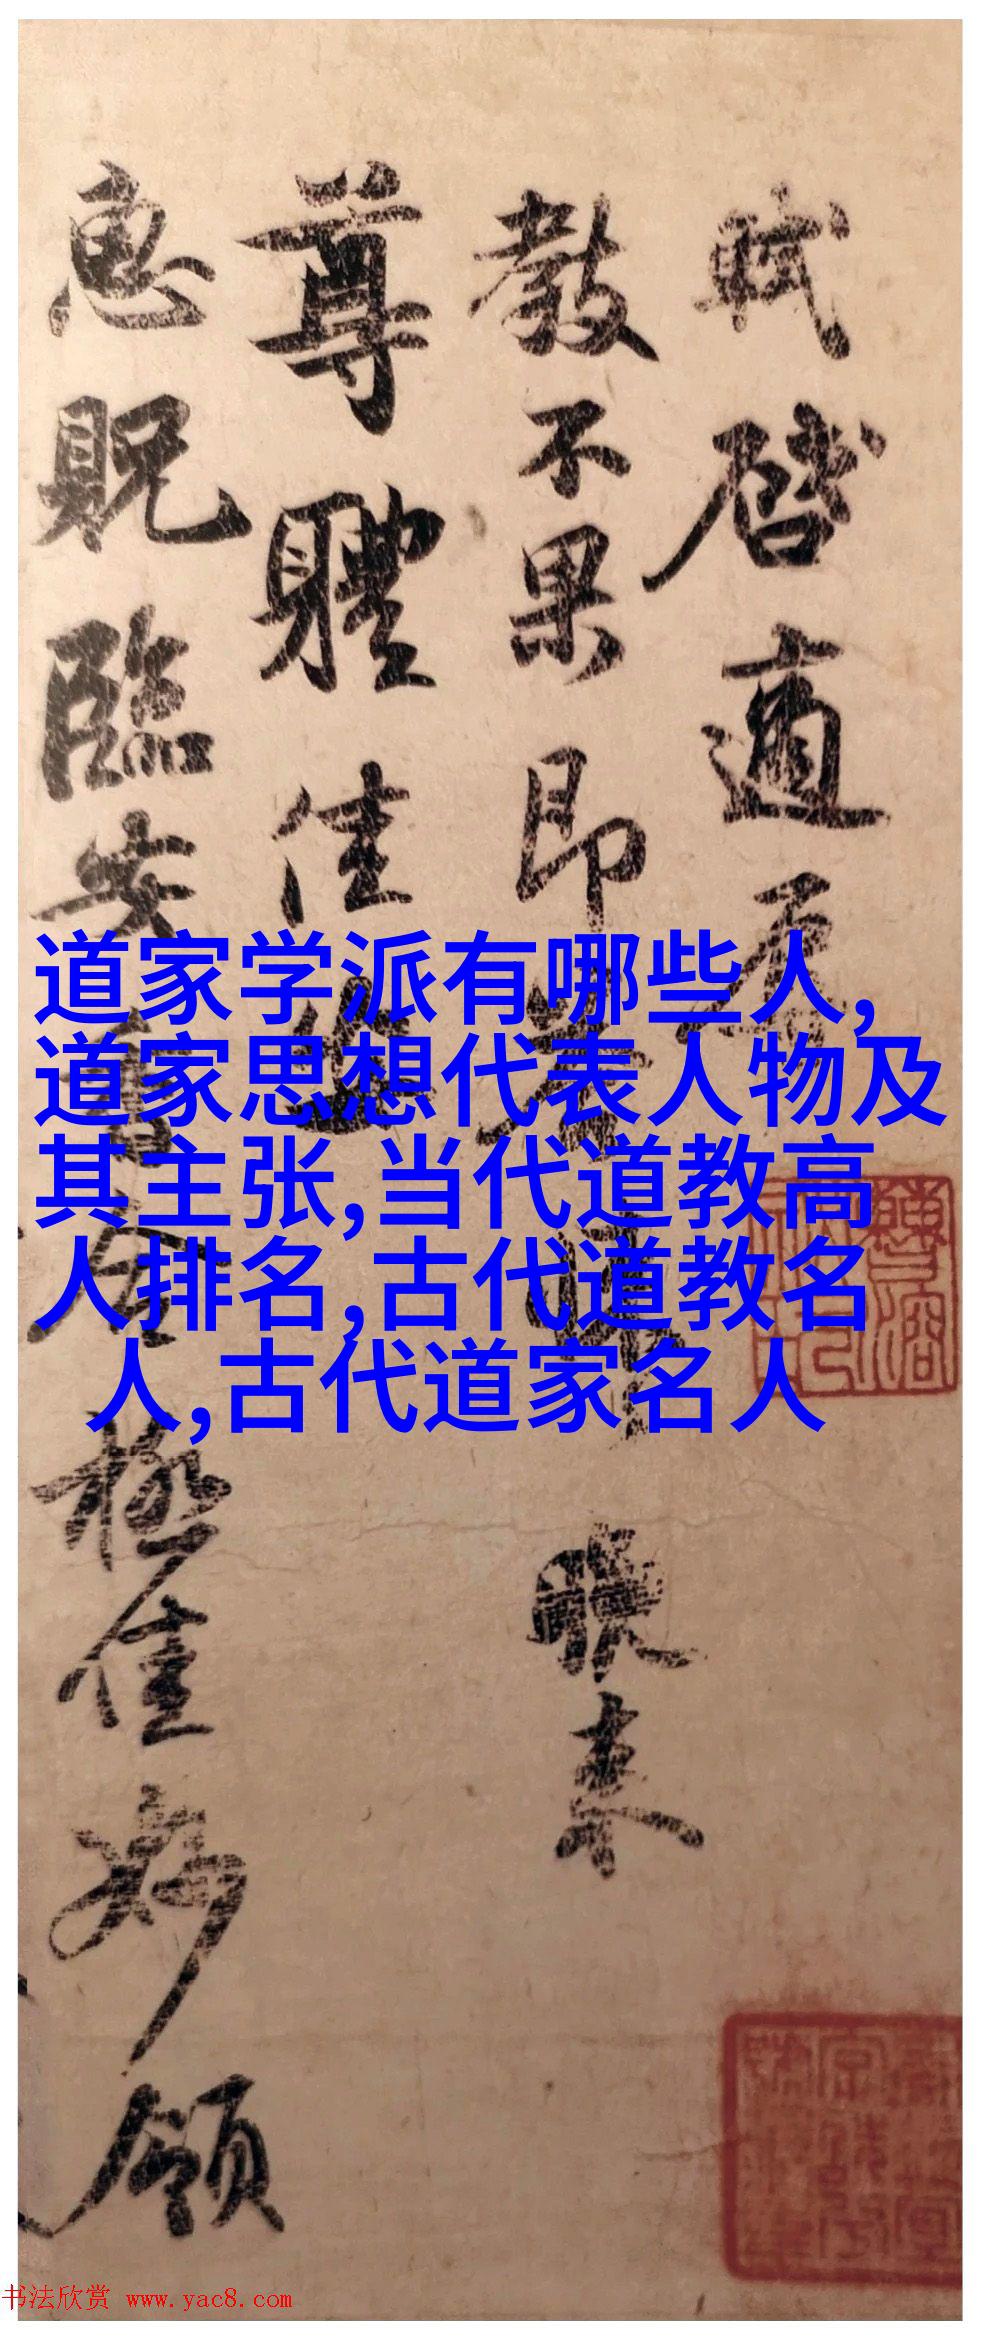 軾啓適辱
教不果即答晚來
尊體佳勝
惠貺臨安香合極佳妙領
道家学派有哪些人,
道家思想代表人物及
其主张,当代道教高
人排名,古代道教名
人,古代道家名人
书法欣赏 www.yac8.com